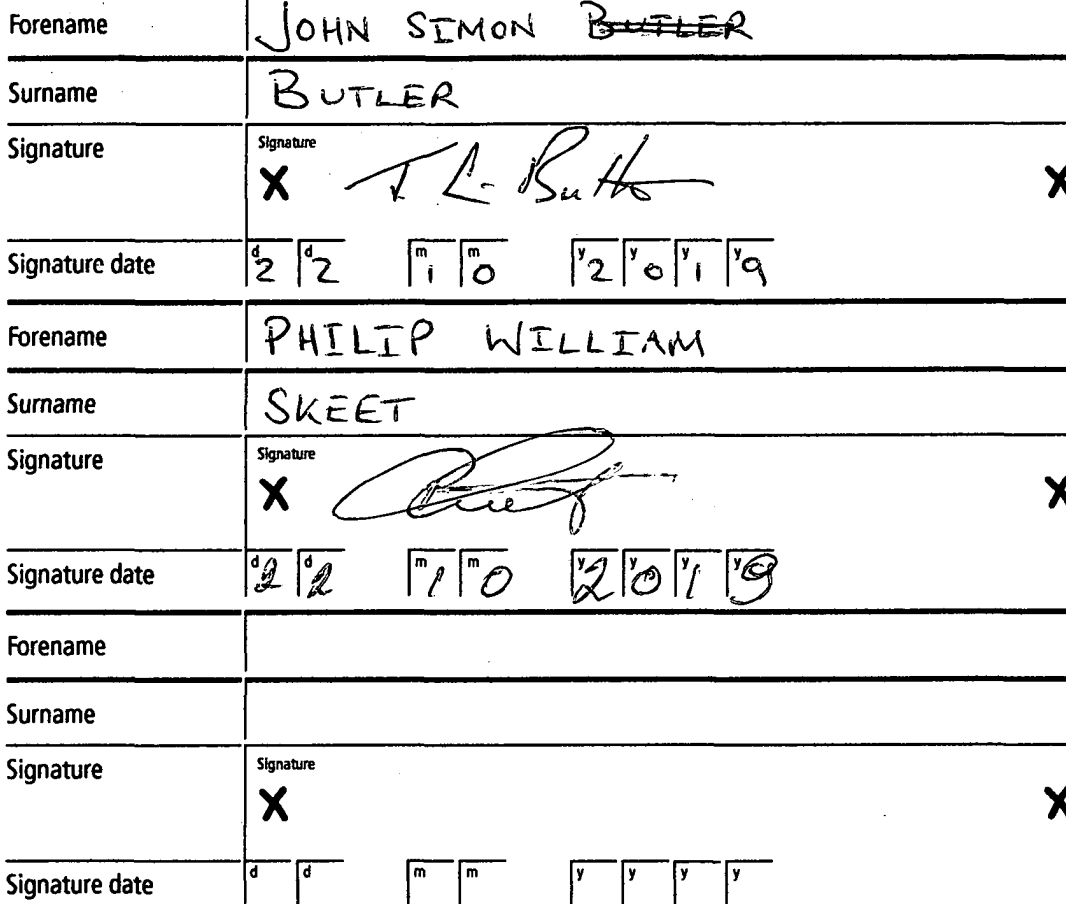 Forename JOHN SIMON BUTLER
Surname BUTLER
Signature Signature
X X
Signature date d2 d2 m1 m0 y2 y0 y1 y9
Forename PHILIP WILLIAM
Surname SKEET
Signature Signature
X X
Signature date d2 d2 m1 m0 y2 y0 y1 y9
Forename
Surname
Signature Signature
X X
Signature date d d m m y y y y